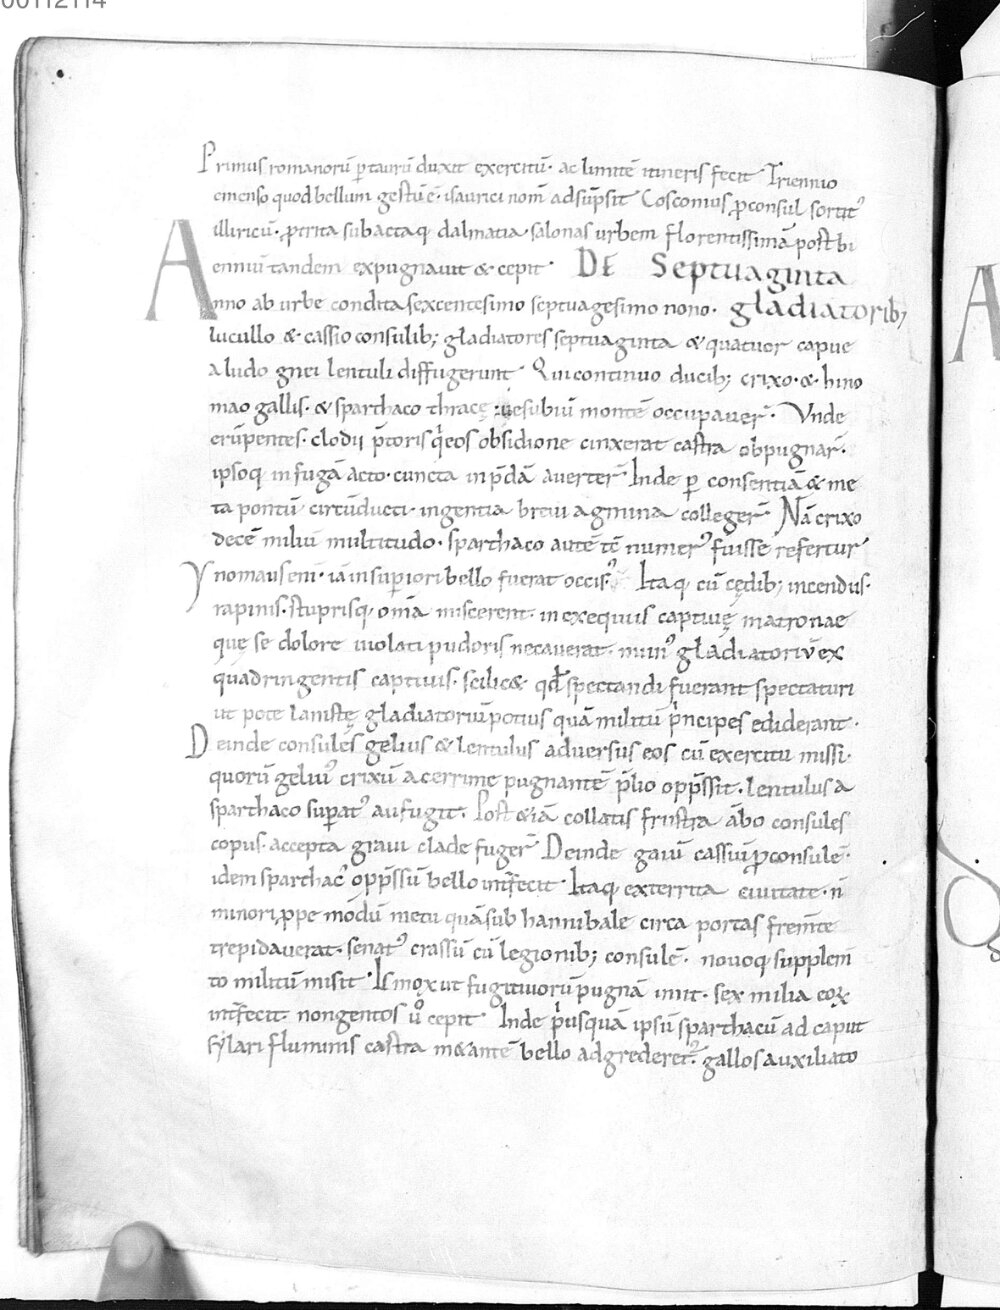 00112114
Primus romanorū ꝑ taurū duxit exercitū· ac limitē itineris fecit Triennio
emenso quod bellum gestū ē· isaurici nom̄ adsūpsit Cosconius ꝓconsul sortit᾽
illiricū· ꝓtrita subactaq; dalmatia· salonas urbem florentissimā post bi
enniū tandem expugnauit & cepit· DE Septuaginta
Anno ab urbe condita sexcentesimo septuagesimo nono· gladiatorib;
lucullo & cassio consulib; gladiatores septuaginta & quatuor capue
a ludo gnei lentuli diffugerunt· Qui continuo ducib; crixo· & hino
mao gallis· & sparthaco thracę uesubiū montē occupauer̄· Vnde
erūpentes· clodii p̄toris q̄ eos obsidione cinxerat castra obpugnar̄·
ipsoq; in fugā acto· cuncta in p̄dā auerter̄· Inde ꝑ consentiā & me
ta pontū circūducti· ingentia breui agmina colleger̄· Nā crixo
decē miliū multitudo· sparthaco autē tc̄ numer᾽ fuisse refertur
Ynomaus eni᷒· iā in suꝑiori bello fuerat occis᾽· Itaq; cū cędib; incendiis·
rapinis· stuprisq; om̄a miscerent· in exequiis captiuę matronae
quę se dolore uiolati pudoris necauerat· mun᾽ gladiatoriū ex
quadringentis captiuis· scilic& qd̄ spectandi fuerant spectaturi
ut pote lanistę gladiatorū potius quā militū p̄ncipes ediderant·
Deinde consules gelius & lentulus aduersus eos cū exercitu missi·
quorū geliu᾽ crixū acerrime pugnantē p̄lio opp̄ssit· lentulus a
sparthaco suꝑat᾽ aufugit· Post &iā collatis frustra abo consules
copiis· accepta graui clade fuger̄ Deinde gaiū cassiū ꝓconsulē·
idem sparthac᾽ opp̄ssū bello int̄fecit· Itaq; exterrita ciuitate· n̄
minori ꝓpe modū metu quā sub hannibale circa portas frem̄te
trepidauerat· senat᾽ crassū cū legionib; consulē· nouoq; supplem̄
to militū misit· Is mox ut fugitiuorū pugnā iniit· sex milia eoꝝ
int̄fecit· nongentos u᷒ cepit· Inde p̄usquā ipsū sparthacū ad caput
sylari fluminis castra m&antē bello adgrederet᾽· gallos auxiliato